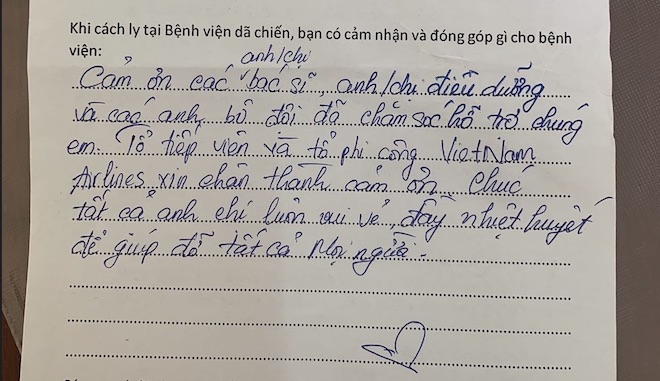 Khi cách ly tại Bệnh viện dã chiến, bạn có cảm nhận và đóng góp gì cho bệnh
viện:
anh/chị
Cảm ơn các bác sĩ, anh/chị điều dưỡng
và các anh bồ đội đã chăm sóc hỗ trợ chúng
em. Tổ tiếp viên và tổ phi công VietNam
Airlines xin chân thành cảm ơn. Chúc
tất cả anh chị luôn vui vẻ, đầy nhiệt huyết
để giúp đỡ tất cả mọi người.